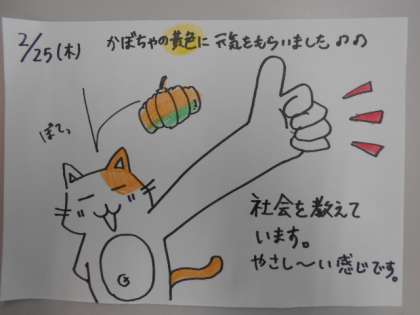 2/25(木)
かぼちゃの黄色に元気をもらいました♪♪
ぽてっ
社会を教えて
います。
やさし〜い感じです。